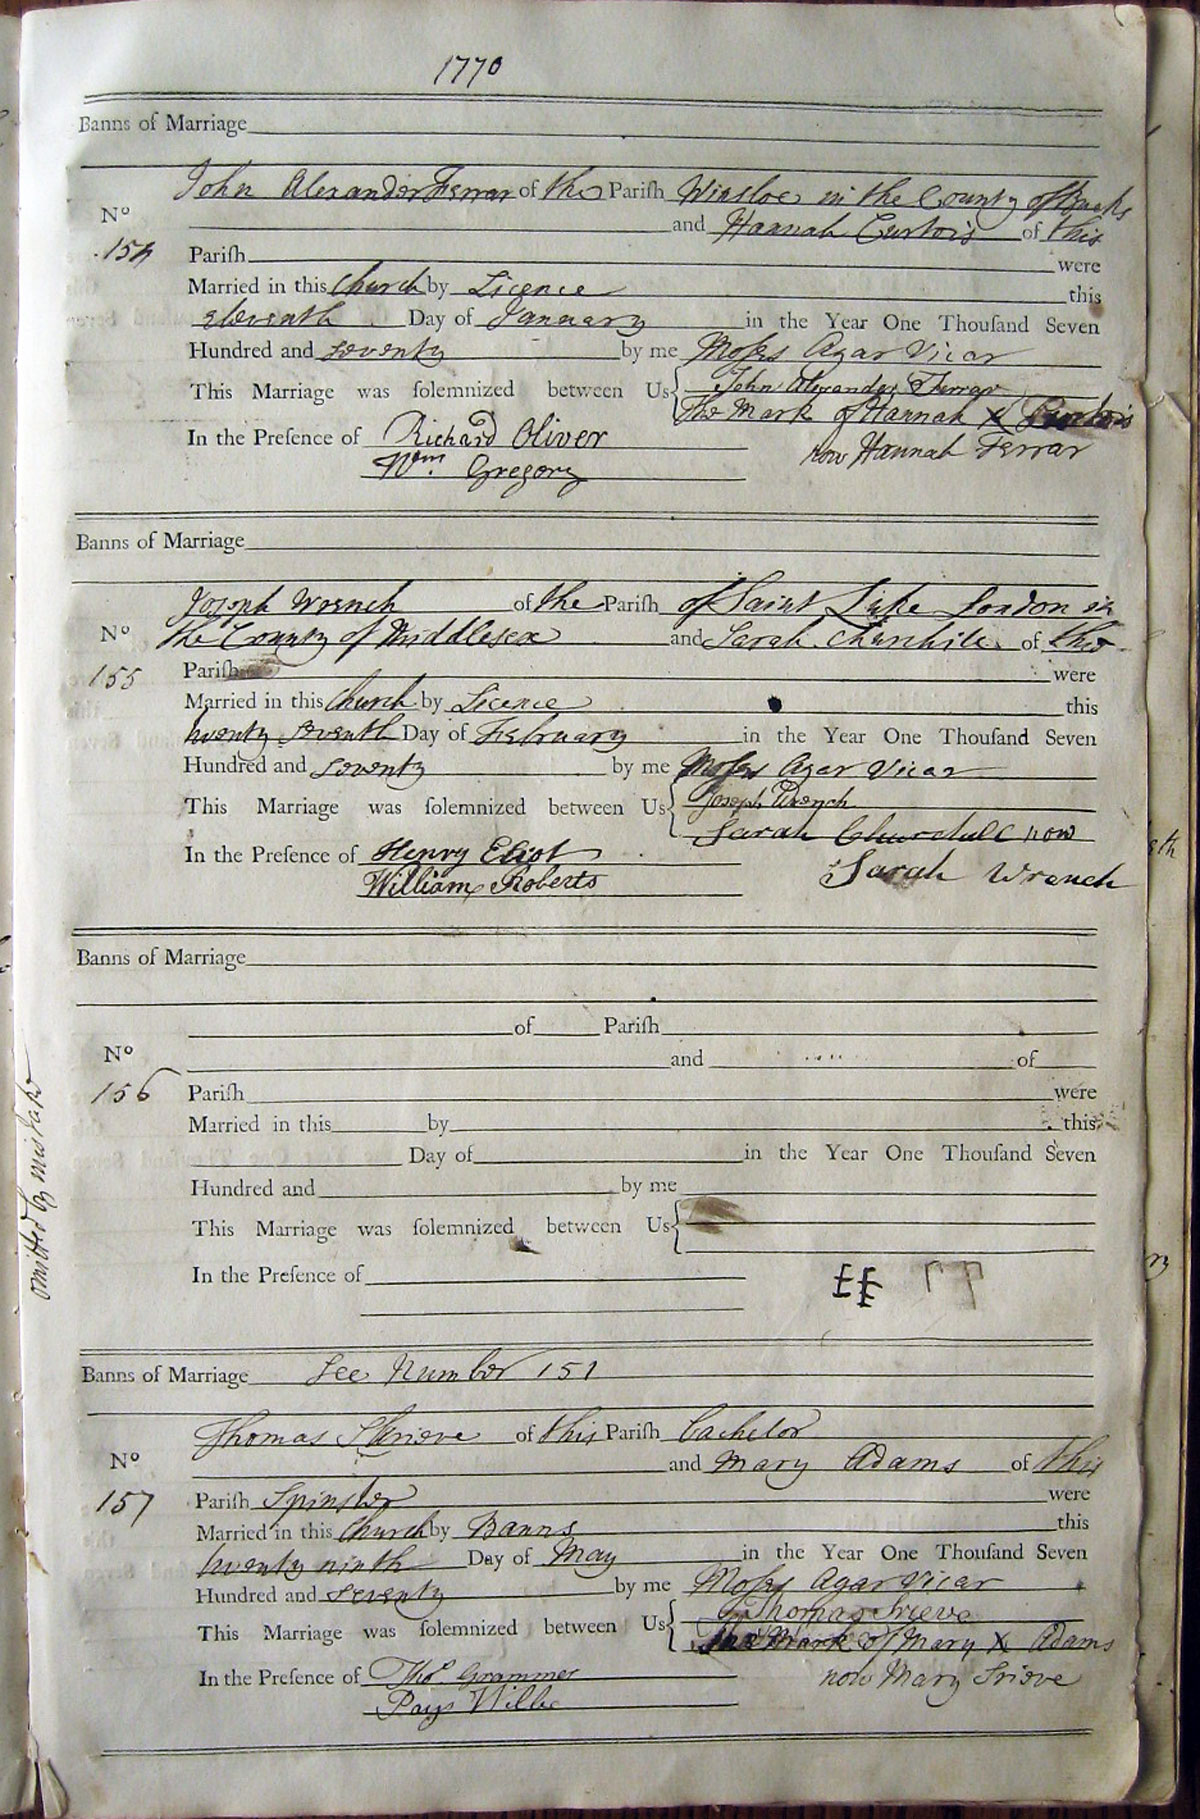 1770
Banns of Marriage
John Alexander Ferrar of the Pariſh Winsloe in the County of Bucks
No
and Hannah Curtois of this
154 Pariſh were
Married in this Church by Licence this
eleventh Day of January in the Year One Thouſand Seven
Hundred and seventy by me Moſes Agar Vicar
This Marriage was ſolemnized between Us John Alexander Ferrar
The Mark of Hannah X Curtois
In the Preſence of Richard Oliver now Hannah Ferrar
Wm. Gregory
Banns of Marriage
Joseph Wrench of the Pariſh of Saint Luke London in
No the County of Middlesex and Sarah Churchile of this
155 Pariſh were
Married in this Church by Licence this
twenty seventh Day of February in the Year One Thouſand Seven
Hundred and seventy by me Moſes Agar Vicar
This Marriage was ſolemnized between Us Joseph Wrench
Sarah Churchill now
In the Preſence of Henry Eliot Sarah Wrench
William Roberts
Banns of Marriage
of Pariſh
No and of
156 Pariſh were
Married in this by this
Day of in the Year One Thouſand Seven
Hundred and by me
This Marriage was ſolemnized between Us
In the Preſence of
omitted by mistake
Banns of Marriage See Number 151
Thomas Shrieve of this Pariſh bachelor
No and Mary Adams of this
157 Pariſh Spinster were
Married in this Church by Banns this
twenty ninth Day of May in the Year One Thouſand Seven
Hundred and seventy by me Moſes Agar Vicar
This Marriage was ſolemnized between Us Thomas Srieve
The Mark of Mary X Adams
In the Preſence of Thos. Grammer now Mary Srieve
Pays Willie